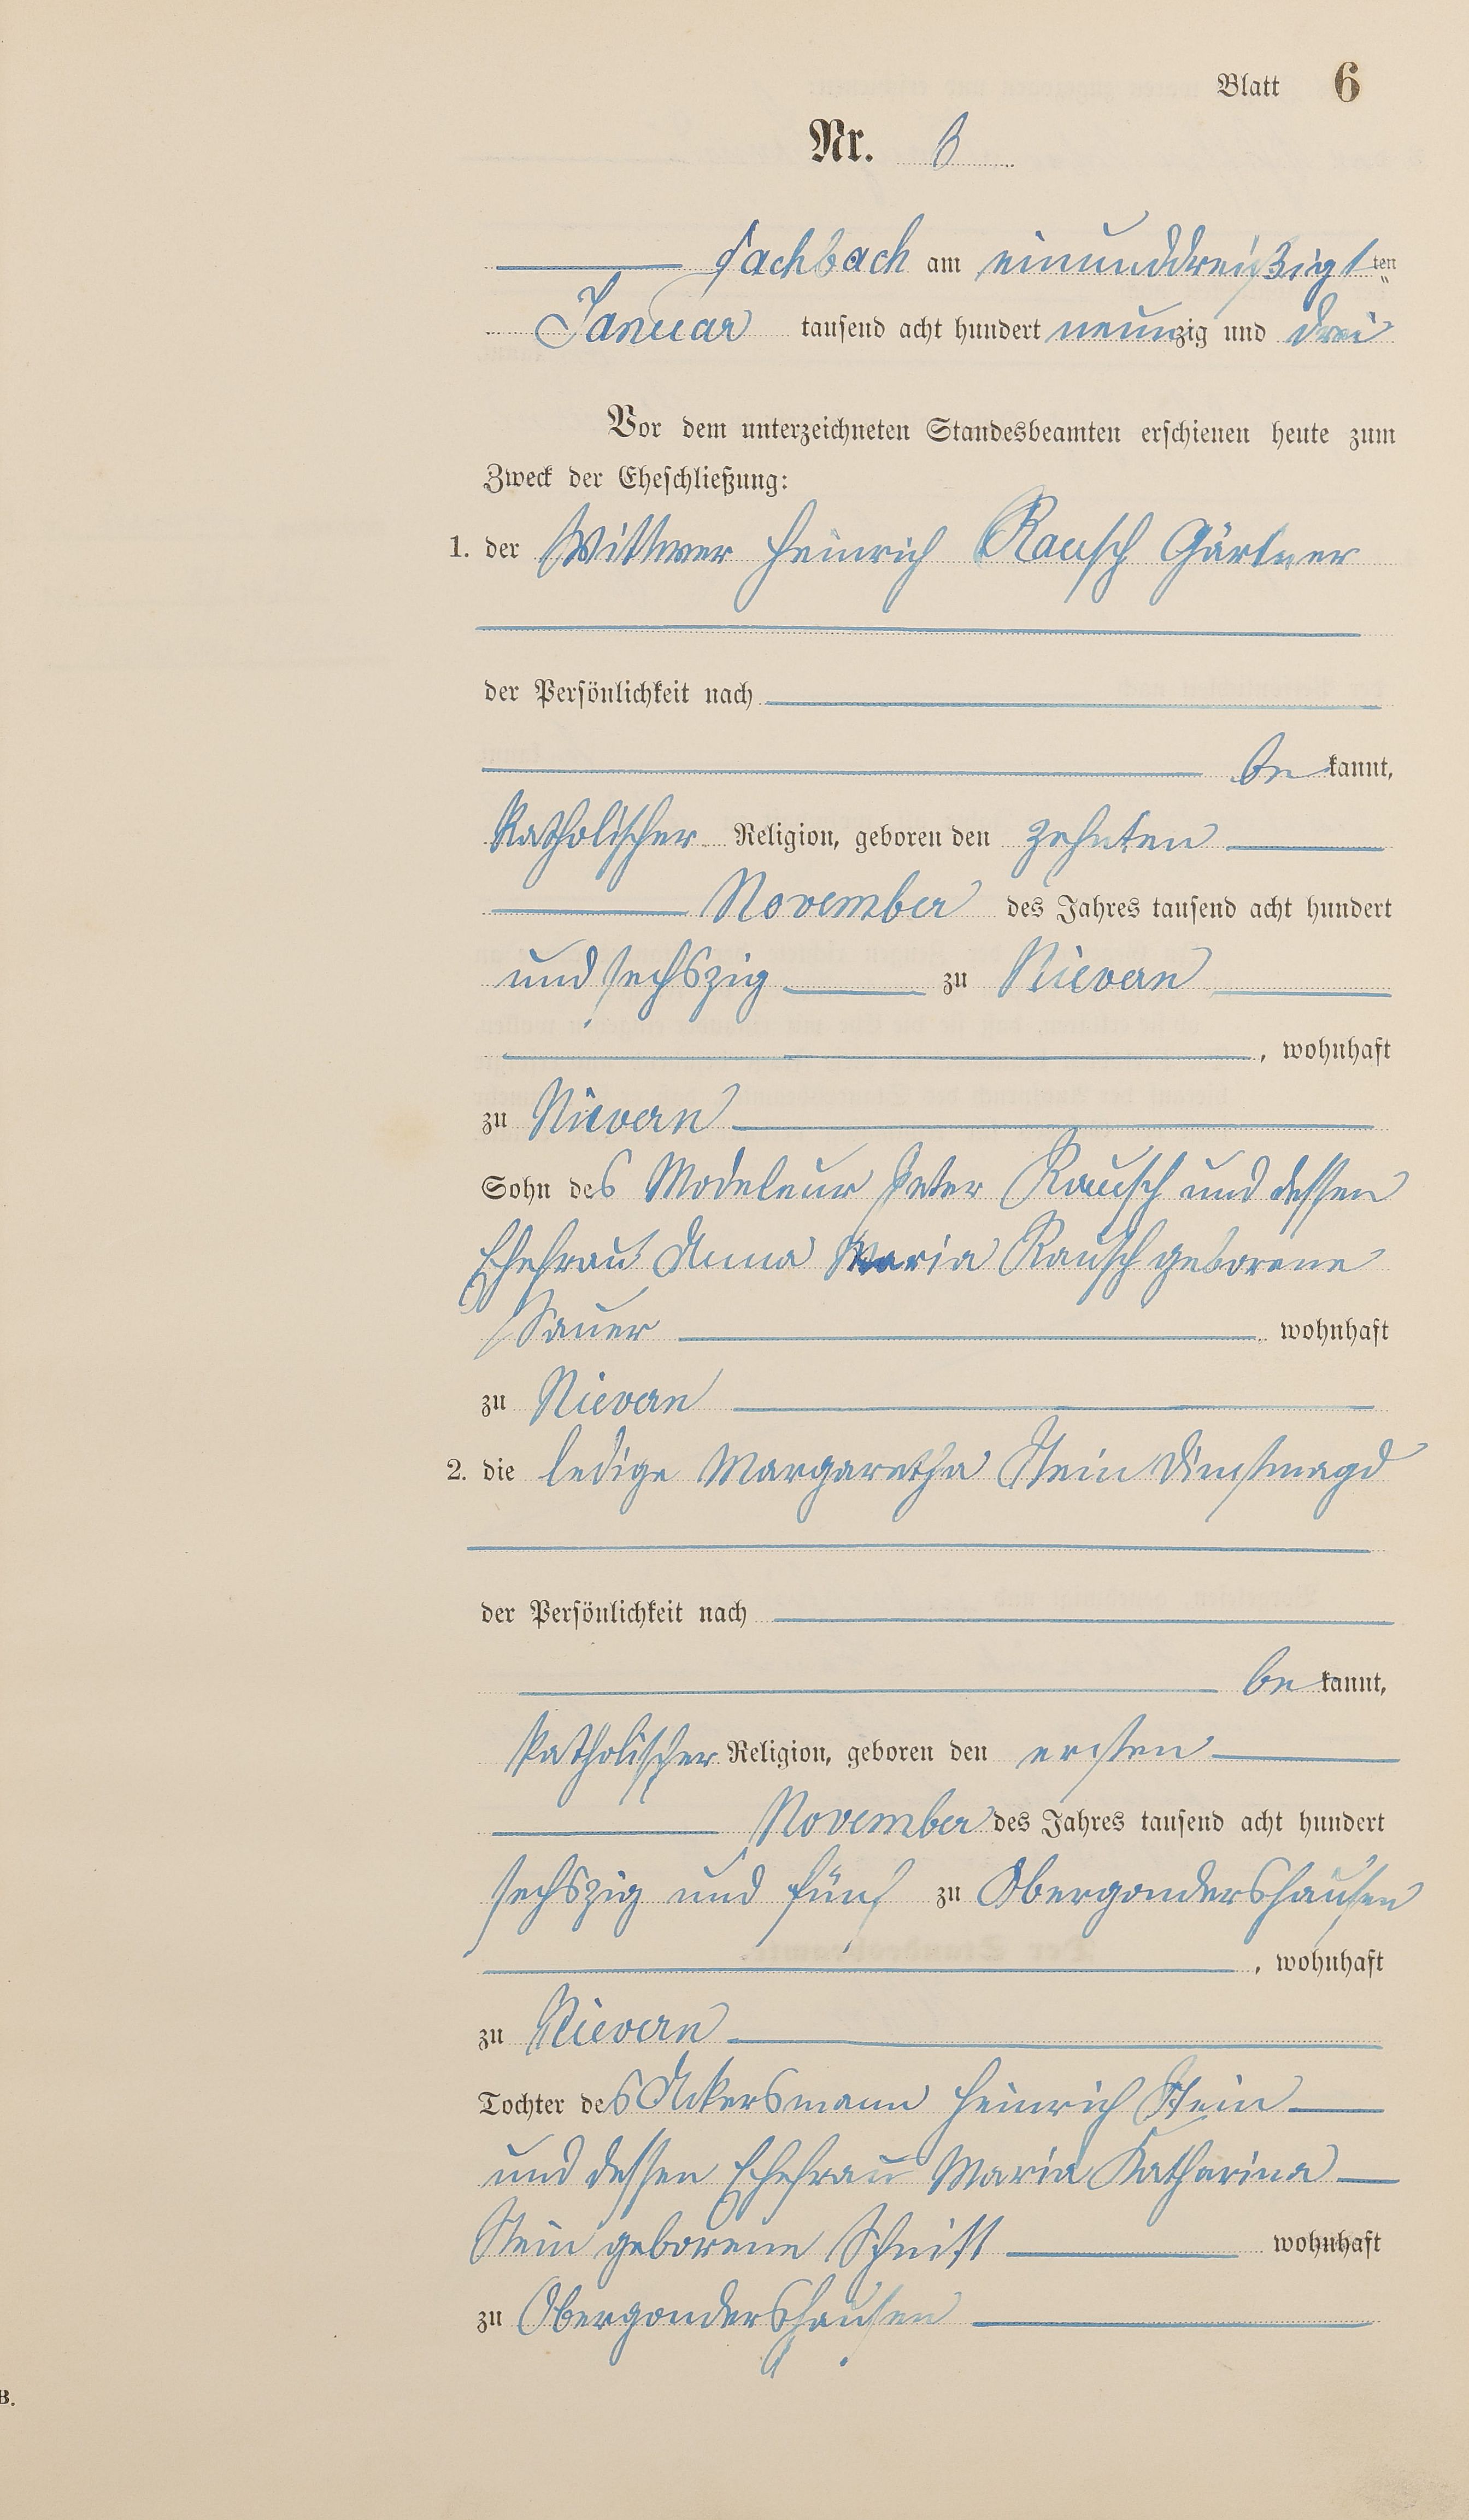 Blatt 6
Nr. 6
Fachbach am einunddreißigsten
Januar tausend acht hundert neunzig und drei
Vor dem unterzeichneten Standesbeamten erschienen heute zum
Zweck der Eheschließung:
1. der Wittwer Heinrich Rausch Gärtner
der Persönlichkeit nach
be kannt,
Katholischer Religion, geboren den zehnten
November des Jahres tausend acht hundert
und sechszig zu Nievern
, wohnhaft
zu Nievern
Sohn des Modeleur Peter Rausch und dessen
Ehefrau Anna Maria Rausch geborene
Sauer wohnhaft
zu Nievern
2. die ledige Margaretha Stein Dienstmagd
der Persönlichkeit nach
be kannt,
Katholischer Religion, geboren den ersten
November des Jahres tausend acht hundert
sechszig und fünf zu Obergondershausen
, wohnhaft
zu Nievern
Tochter des Ackersmann Heinrich Stein
und dessen Ehefrau Maria Katharina
Stein geborene Schnitt wohnhaft
zu Obergondershausen
B.